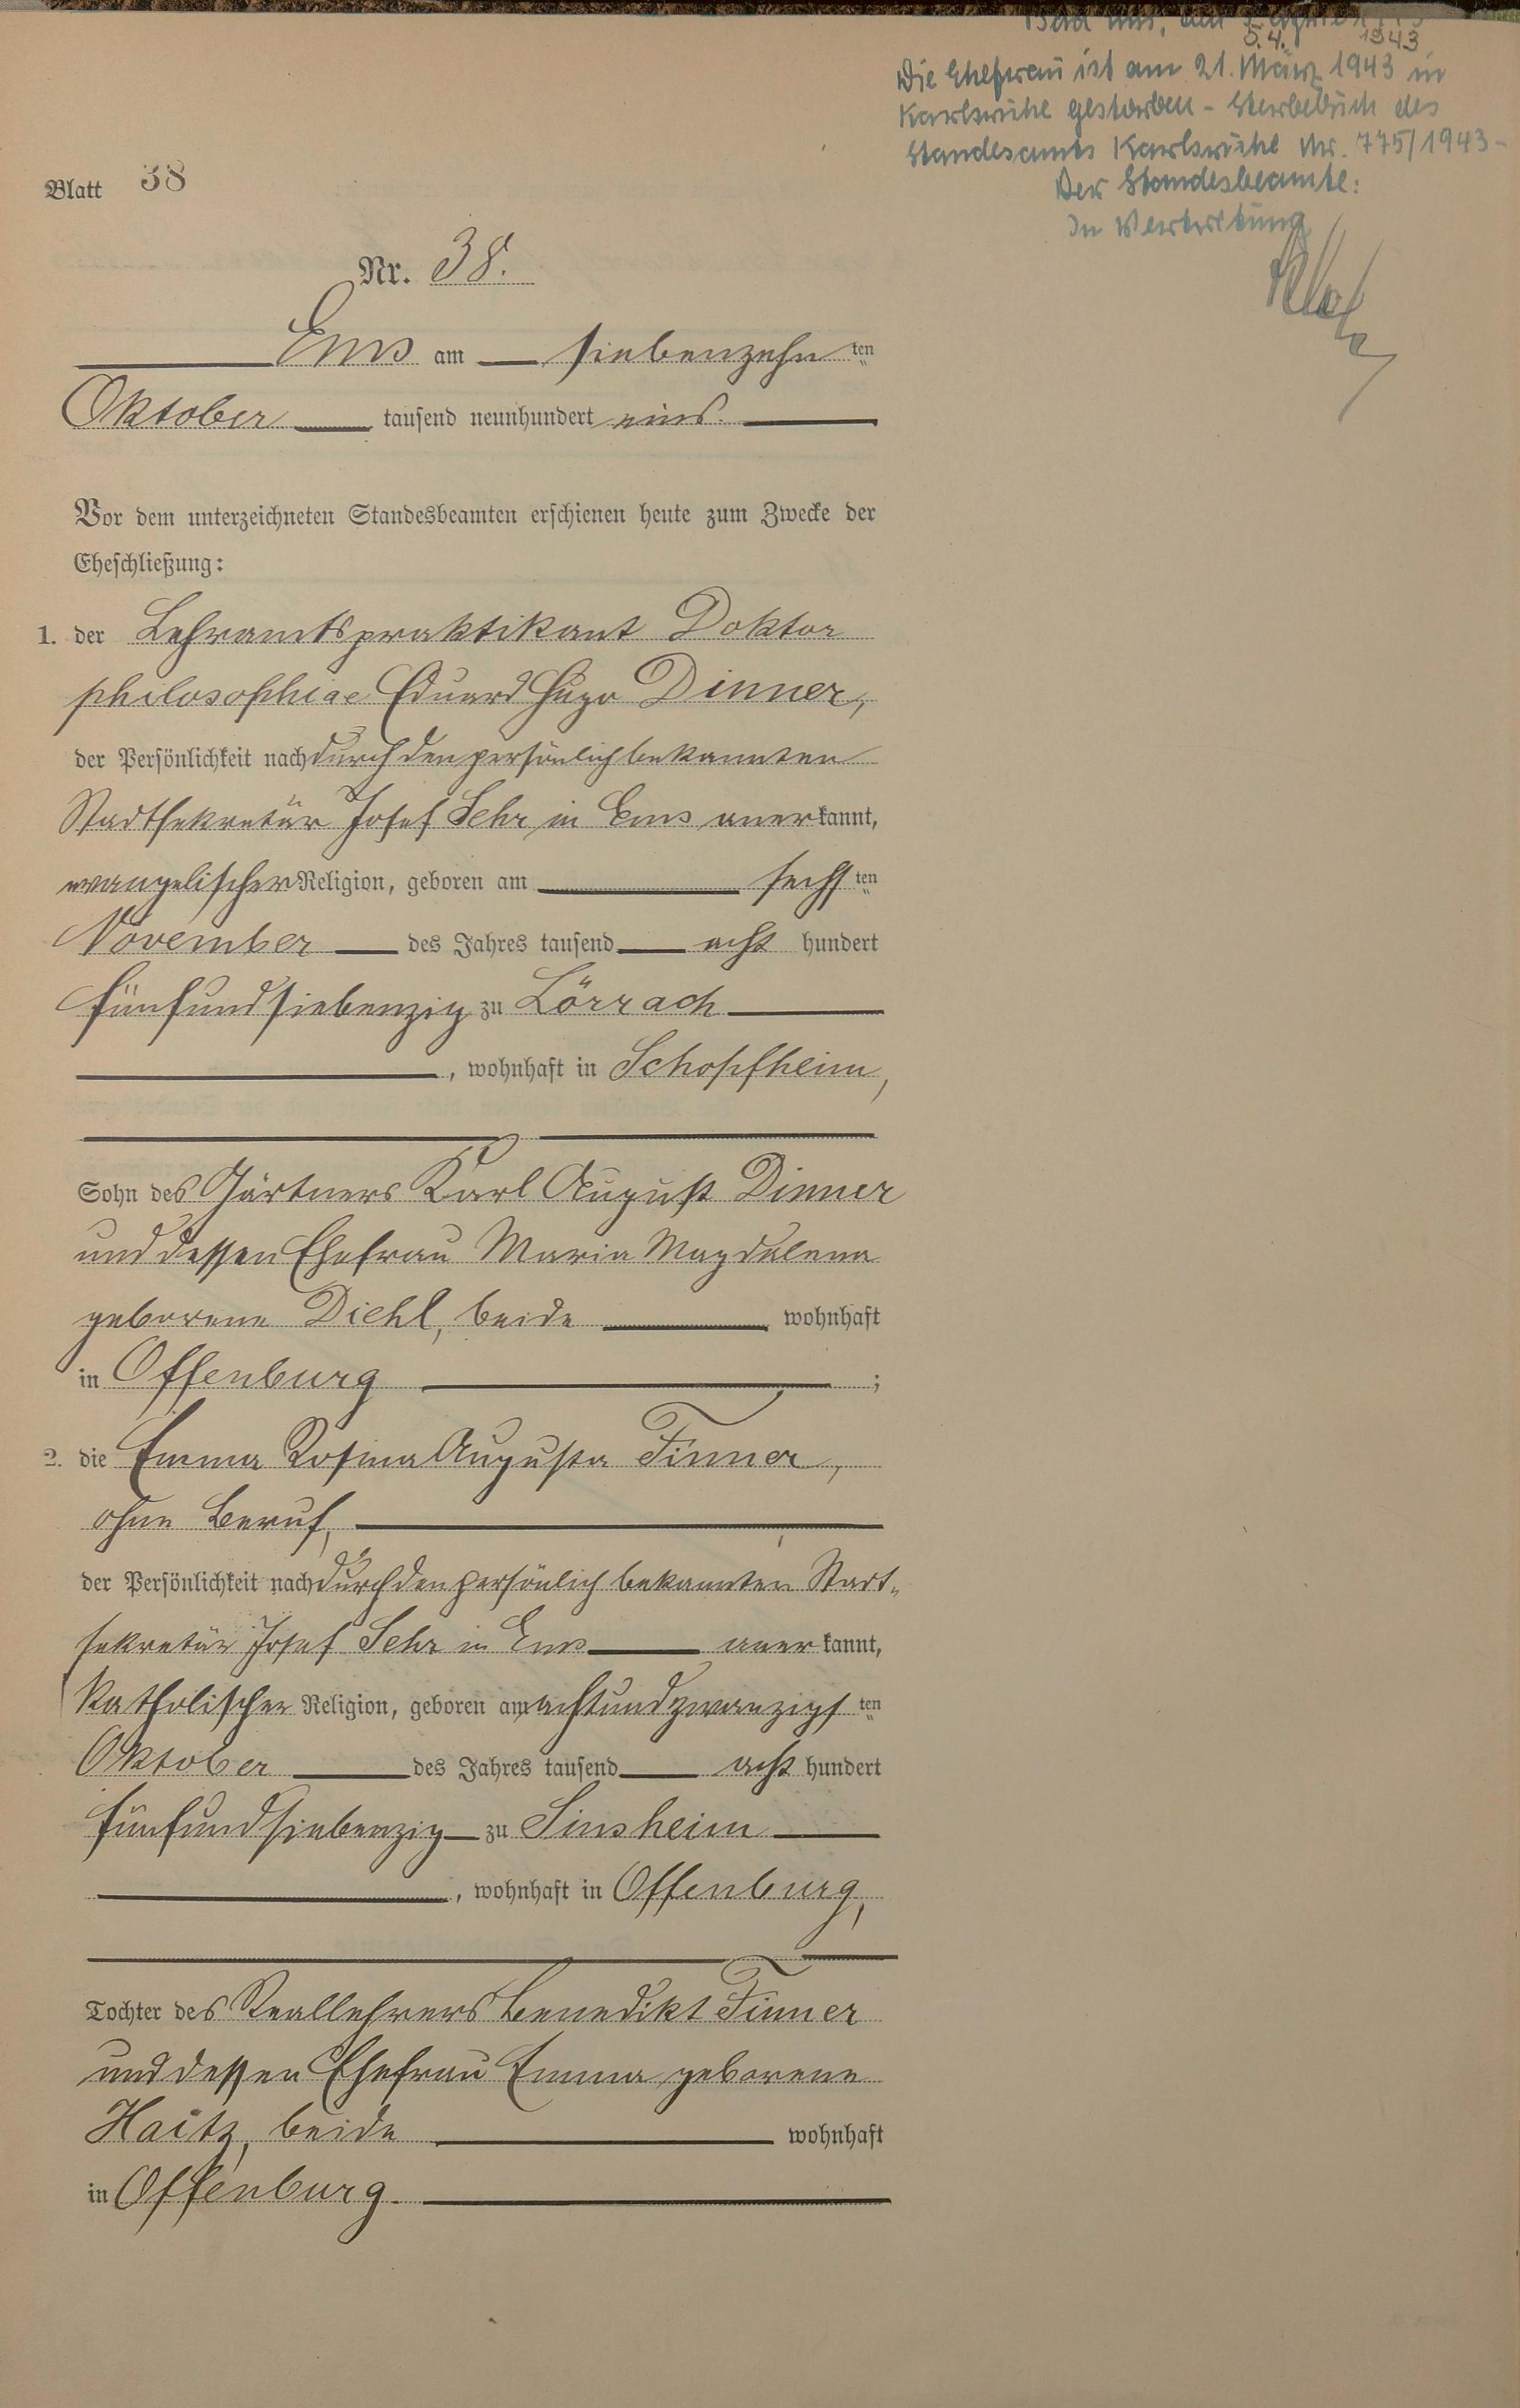 Bad Ems, den
5.4. 1943
Die Ehefrau ist am 21. März 1943 in
Karlsruhe gestorben - Sterbebuch des
Standesamts Karlsruhe Nr. 775/1943 -
Der Standesbeamte:
In Vertretung
Blatt 38
Nr. 38.
Ems am siebenzehn ten
Oktober tausend neunhundert eins.
Vor dem unterzeichneten Standesbeamten erschienen heute zum Zwecke der
Eheschließung:
1. der Lehramtspraktikant Doktor
philosophiae Eduard Hugo Dinner,
der Persönlichkeit nach durch den persönlich bekannten
Stadtsekretär Josef Sehr in Ems anerkannt,
evangelischer Religion, geboren am sechs ten
November des Jahres tausend acht hundert
fünfundsiebenzig zu Lörrach
, wohnhaft in Schopfheim,
Sohn des Gärtners Karl August Dinner
und dessen Ehefrau Maria Magdalena
geborene Diehl, beide wohnhaft
in Offenburg ;
2. die Emma Rosina Augusta Finner,
ohne Beruf,
der Persönlichkeit nach durch den persönlich bekannten Stadt-
sekretär Josef Sehr in Ems anerkannt,
katholischer Religion, geboren am achtundzwanzigs ten
Oktober des Jahres tausend acht hundert
fünfundsiebenzig zu Sinsheim
, wohnhaft in Offenburg,
Tochter des Reallehrers Benedikt Finner
und dessen Ehefrau Emma geborene
Haitz, beide wohnhaft
in Offenburg.